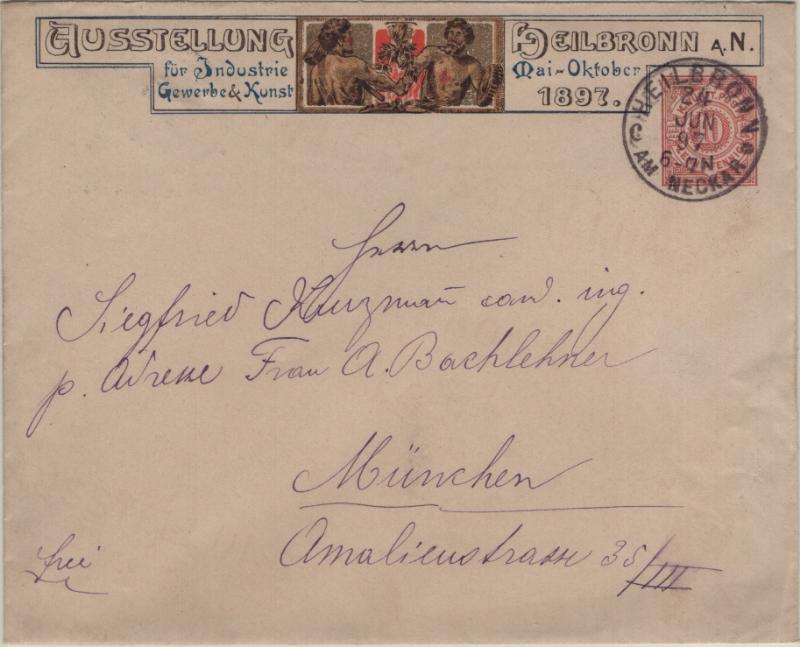 AUSSTELLUNG HEILBRONN A.N.
für Industrie Mai-Oktober
Gewerbe & Kunst 1897.
HEILBRONN
24
JUN
97
6-7N
AM NECKAR
Herrn
Siegfried Kurzmann cand. ing.
p. Adresse Frau A. Bachlehner
München
Amalienstrasse 35/III
frei